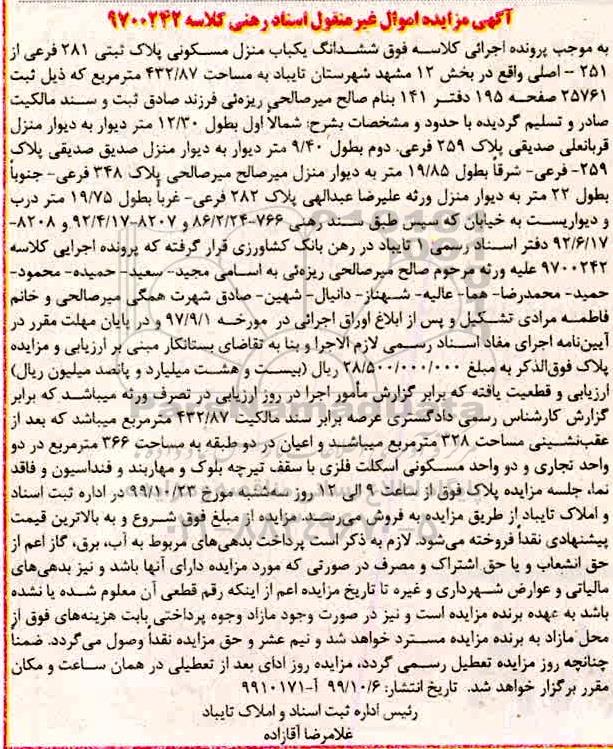 آگهی مزایده اموال غیر منقول اسناد رهنی کلاسه ۹۷۰۰۲۴۲
به موجب پرونده اجرائی کلاسه فوق ششدانگ یکباب منزل مسکونی پلاک ثبتی ۲۸۱ فرعی از
۲۵۱ – اصلی واقع در بخش ۱۲ مشهد شهرستان تایباد به مساحت ۴۳۲/۸۷ مترمربع که ذیل ثبت
۲۵۷۶۱ صفحه ۱۹۵ دفتر ۱۴۱ بنام صالح میرصالحی ریزه‌ئی فرزند صادق ثبت و سند مالکیت
صادر و تسلیم گردیده با حدود و مشخصات بشرح: شمالاً اول بطول ۱۲/۳۰ متر دیوار به دیوار منزل
قربانعلی صدیقی پلاک ۲۵۹ فرعی. دوم بطول ۹/۴۰ متر دیوار به دیوار منزل صدیق صدیقی پلاک
۲۵۹- فرعی- شرقاً بطول ۱۹/۸۵ متر به دیوار منزل میرصالح میرصالحی پلاک ۳۴۸ فرعی- جنوباً
بطول ۲۲ متر به دیوار منزل ورثه علیرضا عبدالهی پلاک ۲۸۲ فرعی- غرباً بطول ۱۹/۷۵ متر درب
و دیواریست به خیابان که سپس طبق سند رهنی ۷۶۶-۸۶/۲/۲۴ و ۸۲۰۷-۹۲/۴/۱۷ و ۸۲۰۸-
۹۲/۶/۱۷ دفتر اسناد رسمی ۱ تایباد در رهن بانک کشاورزی قرار گرفته که پرونده اجرایی کلاسه
۹۷۰۰۲۴۲ علیه ورثه مرحوم صالح میرصالحی ریزه‌ئی به اسامی مجید- سعید- حمیده- محمود-
حمید- محمدرضا- هما- عالیه- شهناز- دانیال- شهین- صادق شهرت همگی میرصالحی و خانم
فاطمه مرادی تشکیل و پس از ابلاغ اوراق اجرائی در مورخه ۹۷/۹/۱ و در پایان مهلت مقرر در
آیین‌نامه اجرای مفاد اسناد رسمی لازم الاجرا و بنا به تقاضای بستانکار مبنی بر ارزیابی و مزایده
پلاک فوق‌الذکر به مبلغ ۲۸/۵۰۰/۰۰۰/۰۰۰ ریال (بیست و هشت میلیارد و پانصد میلیون ریال)
ارزیابی و قطعیت یافته که برابر گزارش مأمور اجرا در روز ارزیابی در تصرف ورثه میباشد که برابر
گزارش کارشناس رسمی دادگستری عرصه برابر سند مالکیت ۴۳۲/۸۷ مترمربع میباشد که بعد از
عقب‌نشینی مساحت ۳۲۸ مترمربع میباشد و اعیان در دو طبقه به مساحت ۳۶۶ مترمربع در دو
واحد تجاری و دو واحد مسکونی اسکلت فلزی با سقف تیرچه بلوک و مهاربند و فنداسیون و فاقد
نما، جلسه مزایده پلاک فوق از ساعت ۹ الی ۱۲ روز سه‌شنبه مورخ ۹۹/۱۰/۲۳ در اداره ثبت اسناد
و املاک تایباد از طریق مزایده به فروش می‌رسد. مزایده از مبلغ فوق شروع و به بالاترین قیمت
پیشنهادی نقداً فروخته می‌شود. لازم به ذکر است پرداخت بدهی‌های مربوط به آب، برق، گاز اعم از
حق انشعاب و یا حق اشتراک و مصرف در صورتی که مورد مزایده دارای آنها باشد و نیز بدهی‌های
مالیاتی و عوارض شهرداری و غیره تا تاریخ مزایده اعم از اینکه رقم قطعی آن معلوم شده یا نشده
باشد به عهده برنده مزایده است و نیز در صورت وجود مازاد وجوه پرداختی بابت هزینه‌های فوق از
محل مازاد به برنده مزایده مسترد خواهد شد و نیم عشر و حق مزایده نقداً وصول می‌گردد. ضمناً
چنانچه روز مزایده تعطیل رسمی گردد، مزایده روز ادای بعد از تعطیلی در همان ساعت و مکان
مقرر برگزار خواهد شد. تاریخ انتشار: ۹۹/۱۰/۶ آ-۹۹۱۰۱۷۱
رئیس اداره ثبت اسناد و املاک تایباد
غلامرضا آقازاده